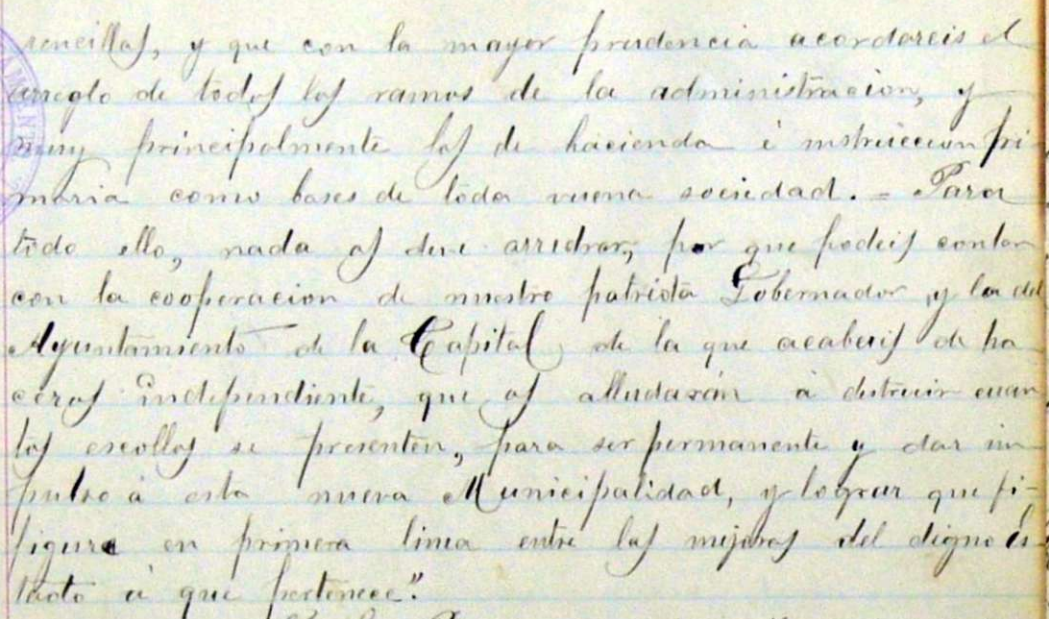 sencillos, y que con la mayor prudencia acordareis el
arreglo de todos los ramos de la administracion, y
muy principalmente los de hacienda é instruccion pri
maria como bases de toda vuena sociedad. = Para
todo ello, nada os deve arredrar, por que podeis contar
con la cooperacion de nuestro patriota Gobernador, y la del
Ayuntamiento de la Capital, de la que acabais de ha
ceros independiente, que os alludarán á destruir cuan
tos escollos se presenten, para ser permanente y dar im
pulso á esta nueva Municipalidad, y lograr que fi-
figure en primera linea entre las mejores del digno Es-
tado á que pertenece".